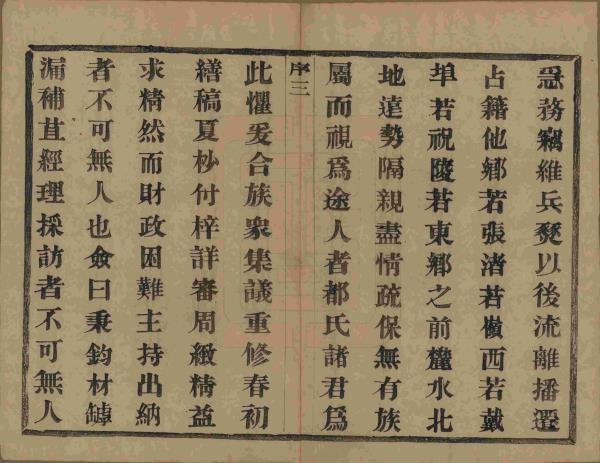 急務竊維兵燹以後流離播遷
占籍他鄉若張渚若嶺西若戴
埠若祝陵若東鄉之前麓水北
地遠勢隔親盡情疏保無有族
屬而視爲途人者都氏諸君爲
序三
此懼爰合族衆集議重修春初
繕稿夏杪付梓詳審周緻精益
求精然而財政困難主持出納
者不可無人也僉曰秉鈞材罅
漏補苴經理採訪者不可無人